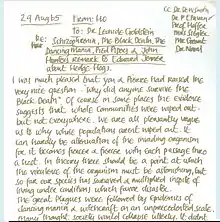 29 Aug 65 From: HO
To: Dr Leannie Goldstein
CC. Dr
Prof Haffer
Re: Schizophrenia, The Black Death, The
Dancing Mania, Red Moors & John
Hunter's remark to Edward Jenner
about Hedge-Hogs.
I was much pleased that you & Pierce had raised the
very nice question - "Why did anyone survive the
Black Death" Of course in some places the evidence
suggests that whole communities were wiped out -
but not everywhere. We are all pleasantly vague
as to why whole populations weren't wiped out. It
can hardly be attenuation of the invading organism
for it becomes fiercer & fiercer with each passage thro
a host. In theory there should be a point at which
the virulence of the organism must be astonishing, but
so far our species has survived a multiplied impact of
living under conditions which favor disaster.
The Great Plagues were followed by Epidemics of
dancing mania &, witchcraft on an unprecedented scale.
Many thought society would collapse utterly. It didn't